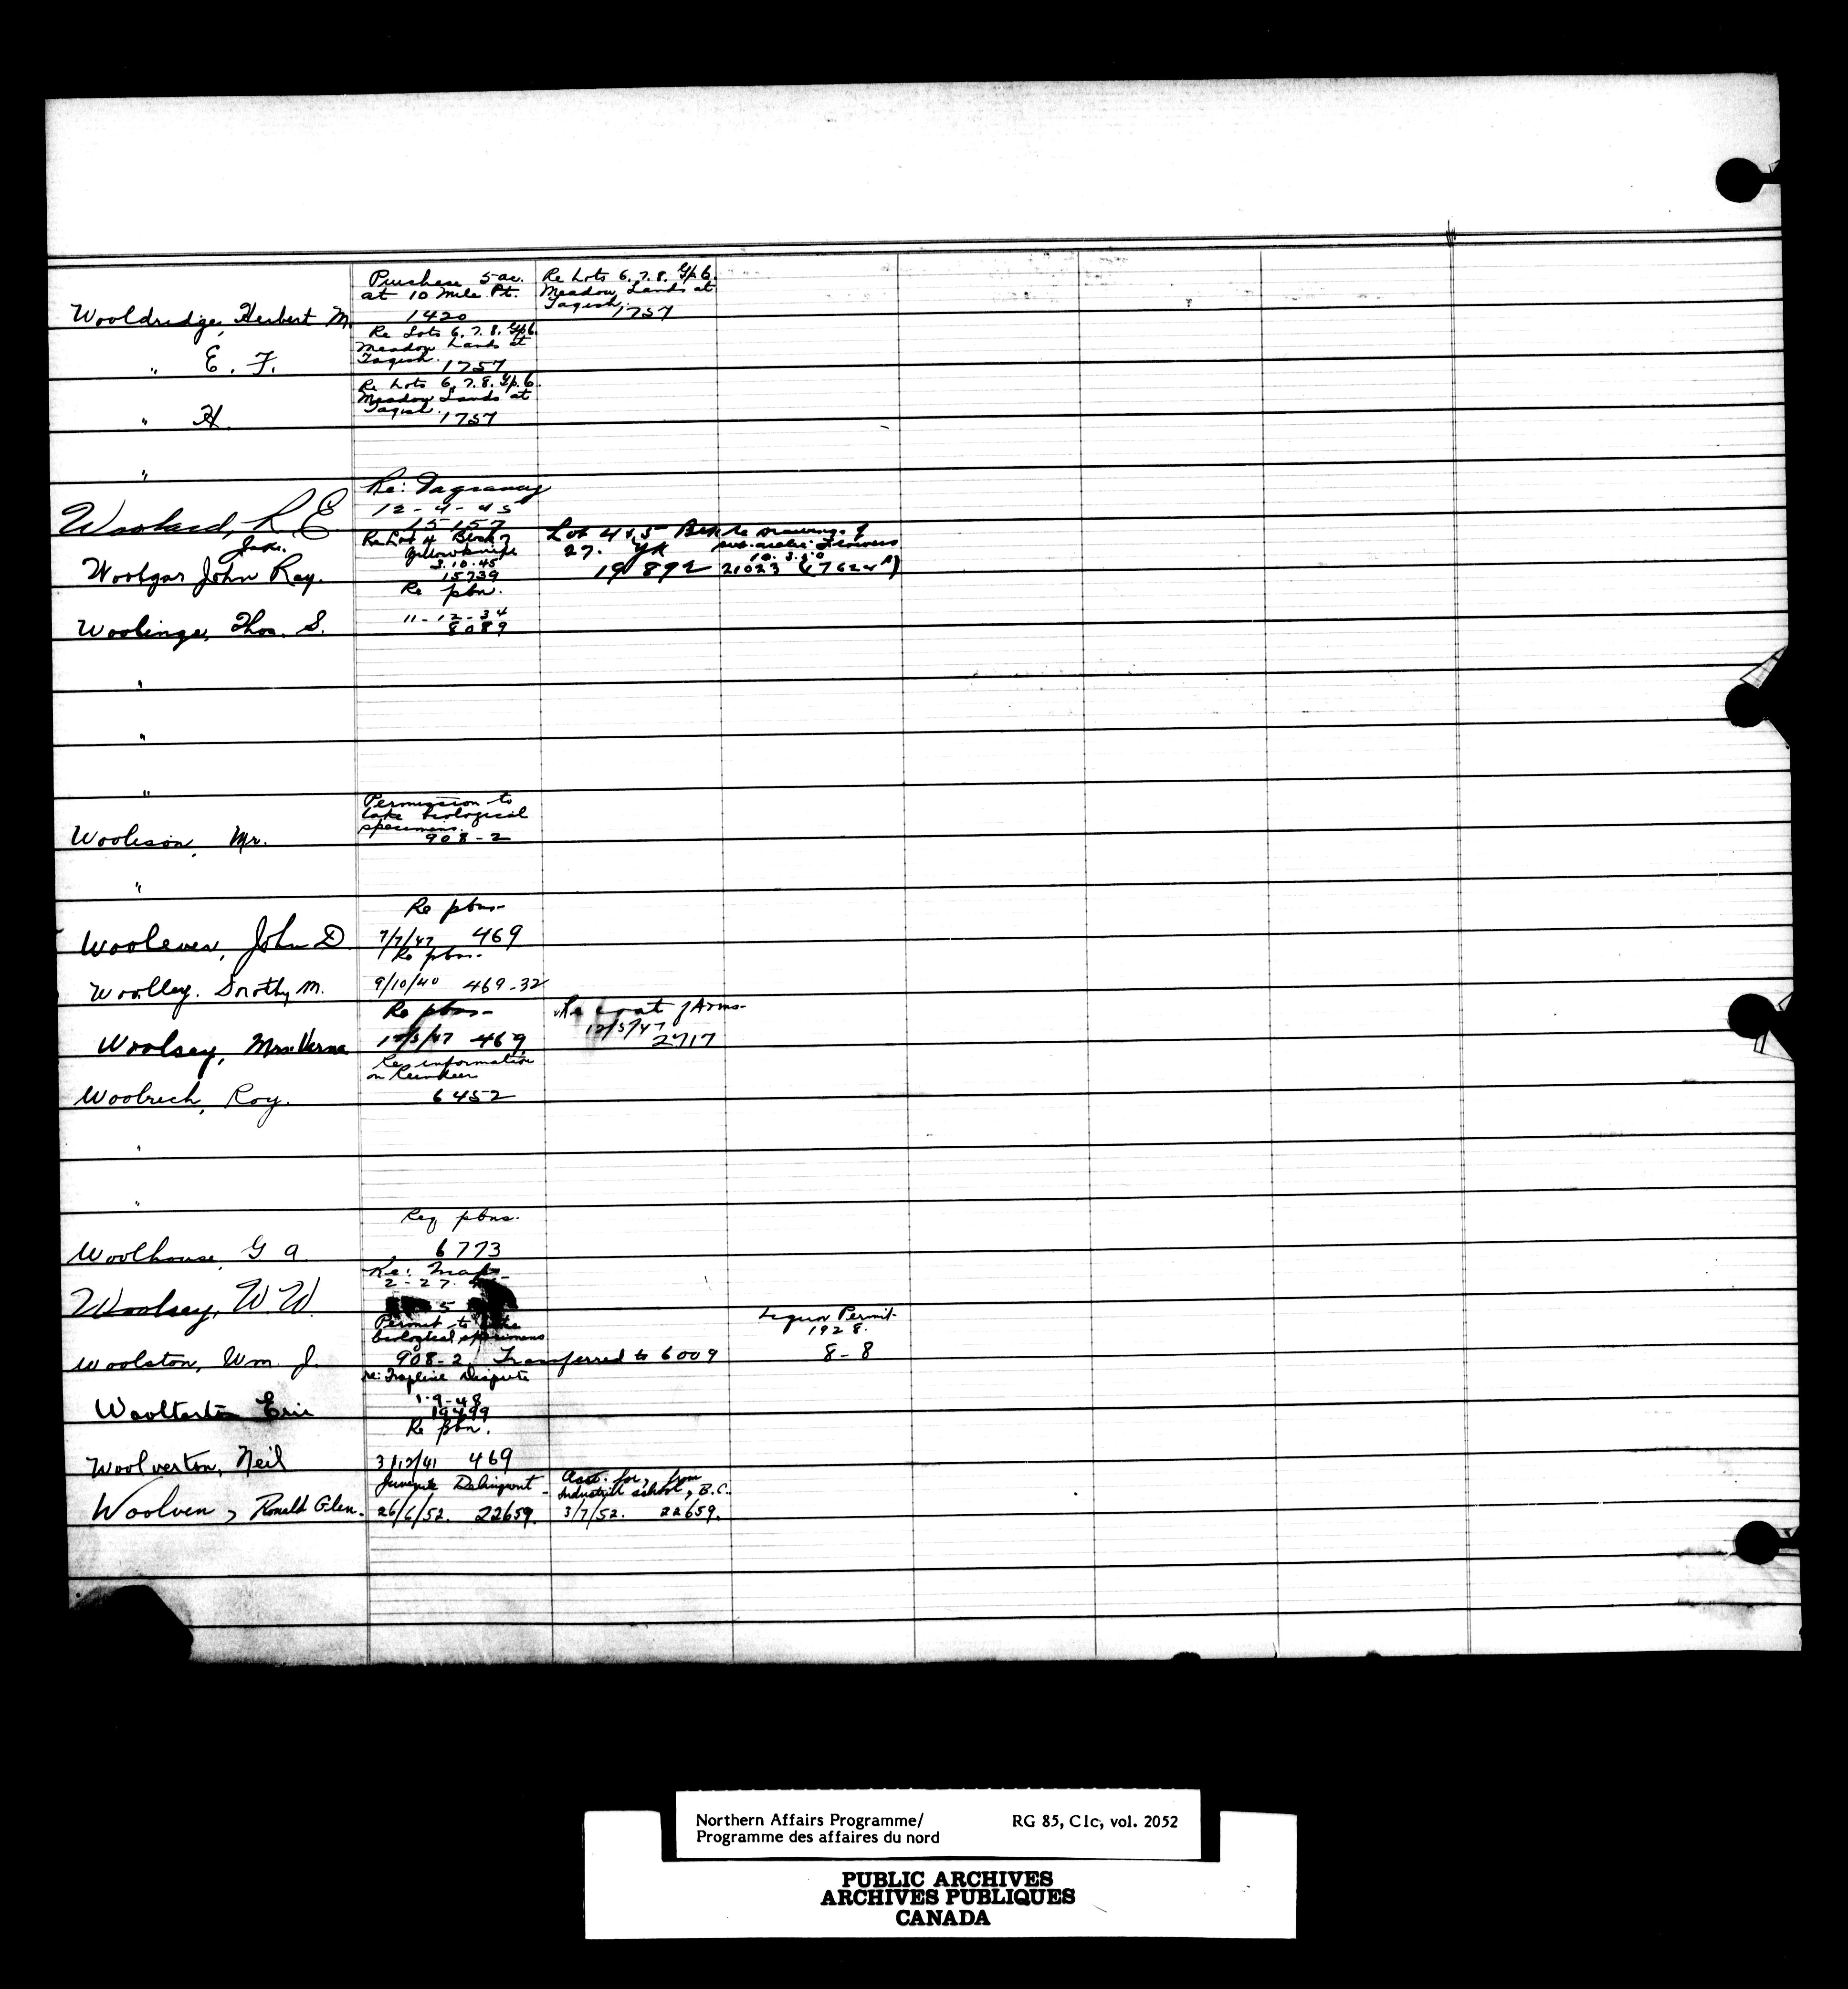 Purchase 5 ac.
at 10 Mile Pt.
Wooldridge, Herbert M. 1420
Re Lots 6. 7. 8. Gp. 6.
Meadow Lands at
Tagish. 1757
" E. F.
Re Lots 6. 7. 8. Gp. 6.
Meadow Lands at
Tagish. 1757
" H.
Re Lots 6. 7. 8. Gp. 6.
Meadow Lands at
Tagish. 1757
"
Re: Vagrancy
12-4-45
15157
Woolard, L. E.
Re Lot 4 Block 7
Yellowknife
3.10.45
15739
Woolgar John Ray.
Jas.
Lot 4 & 5
27. YK
19892
re drawings of
sub-arctic Flowers
10.3.50
21023 (7622
Re pbn.
11-12-34
8089
Woolinge, Thos. S.
"
"
"
Permission to
take biological
specimens.
908-2
Wooleson, Mr.
"
Re pbns-
Woolever, John D. 7/7/47 469
Re pbns-
Woolley. Dorothy M. 9/10/40 469-32
Re pbns- Re coat of Arms-
12/5/47
Woolsey, Mrs. Verna 12/5/47 469 2717
Re information
on Reindeer
Woolrich, Roy. 6452
"
"
Req pbns.
Woolhouse, G A. 6773
Re: Maps
2-27.
Woolsey, W. W. 5
Permit to take
biological specimens
Liquor Permit
1928.
Woolston, Wm. J. 908-2 Transferred to 6009 8-8
re: Trapline Dispute
1-9-48
19499
Woolterton Eric
Re pbn.
Woolverton, Neil 3/12/41 469
Juvenile Delinquent - Acct. for, from
Industrial school, B.C.
Woolven, Ronald Glen. 26/6/52. 22659. 3/7/52. 22659.
Northern Affairs Programme/ RG 85, C1c, vol. 2052
Programme des affaires du nord
PUBLIC ARCHIVES
ARCHIVES PUBLIQUES
CANADA